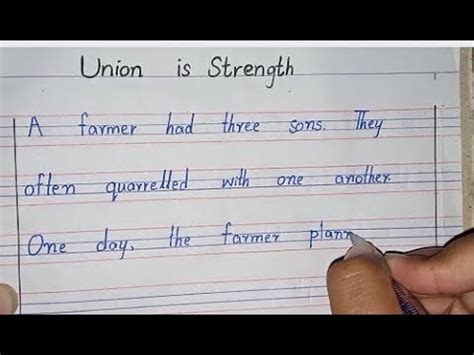 Union is Strength
A farmer had three sons. They
often quarrelled with one another.
One day, the farmer plann